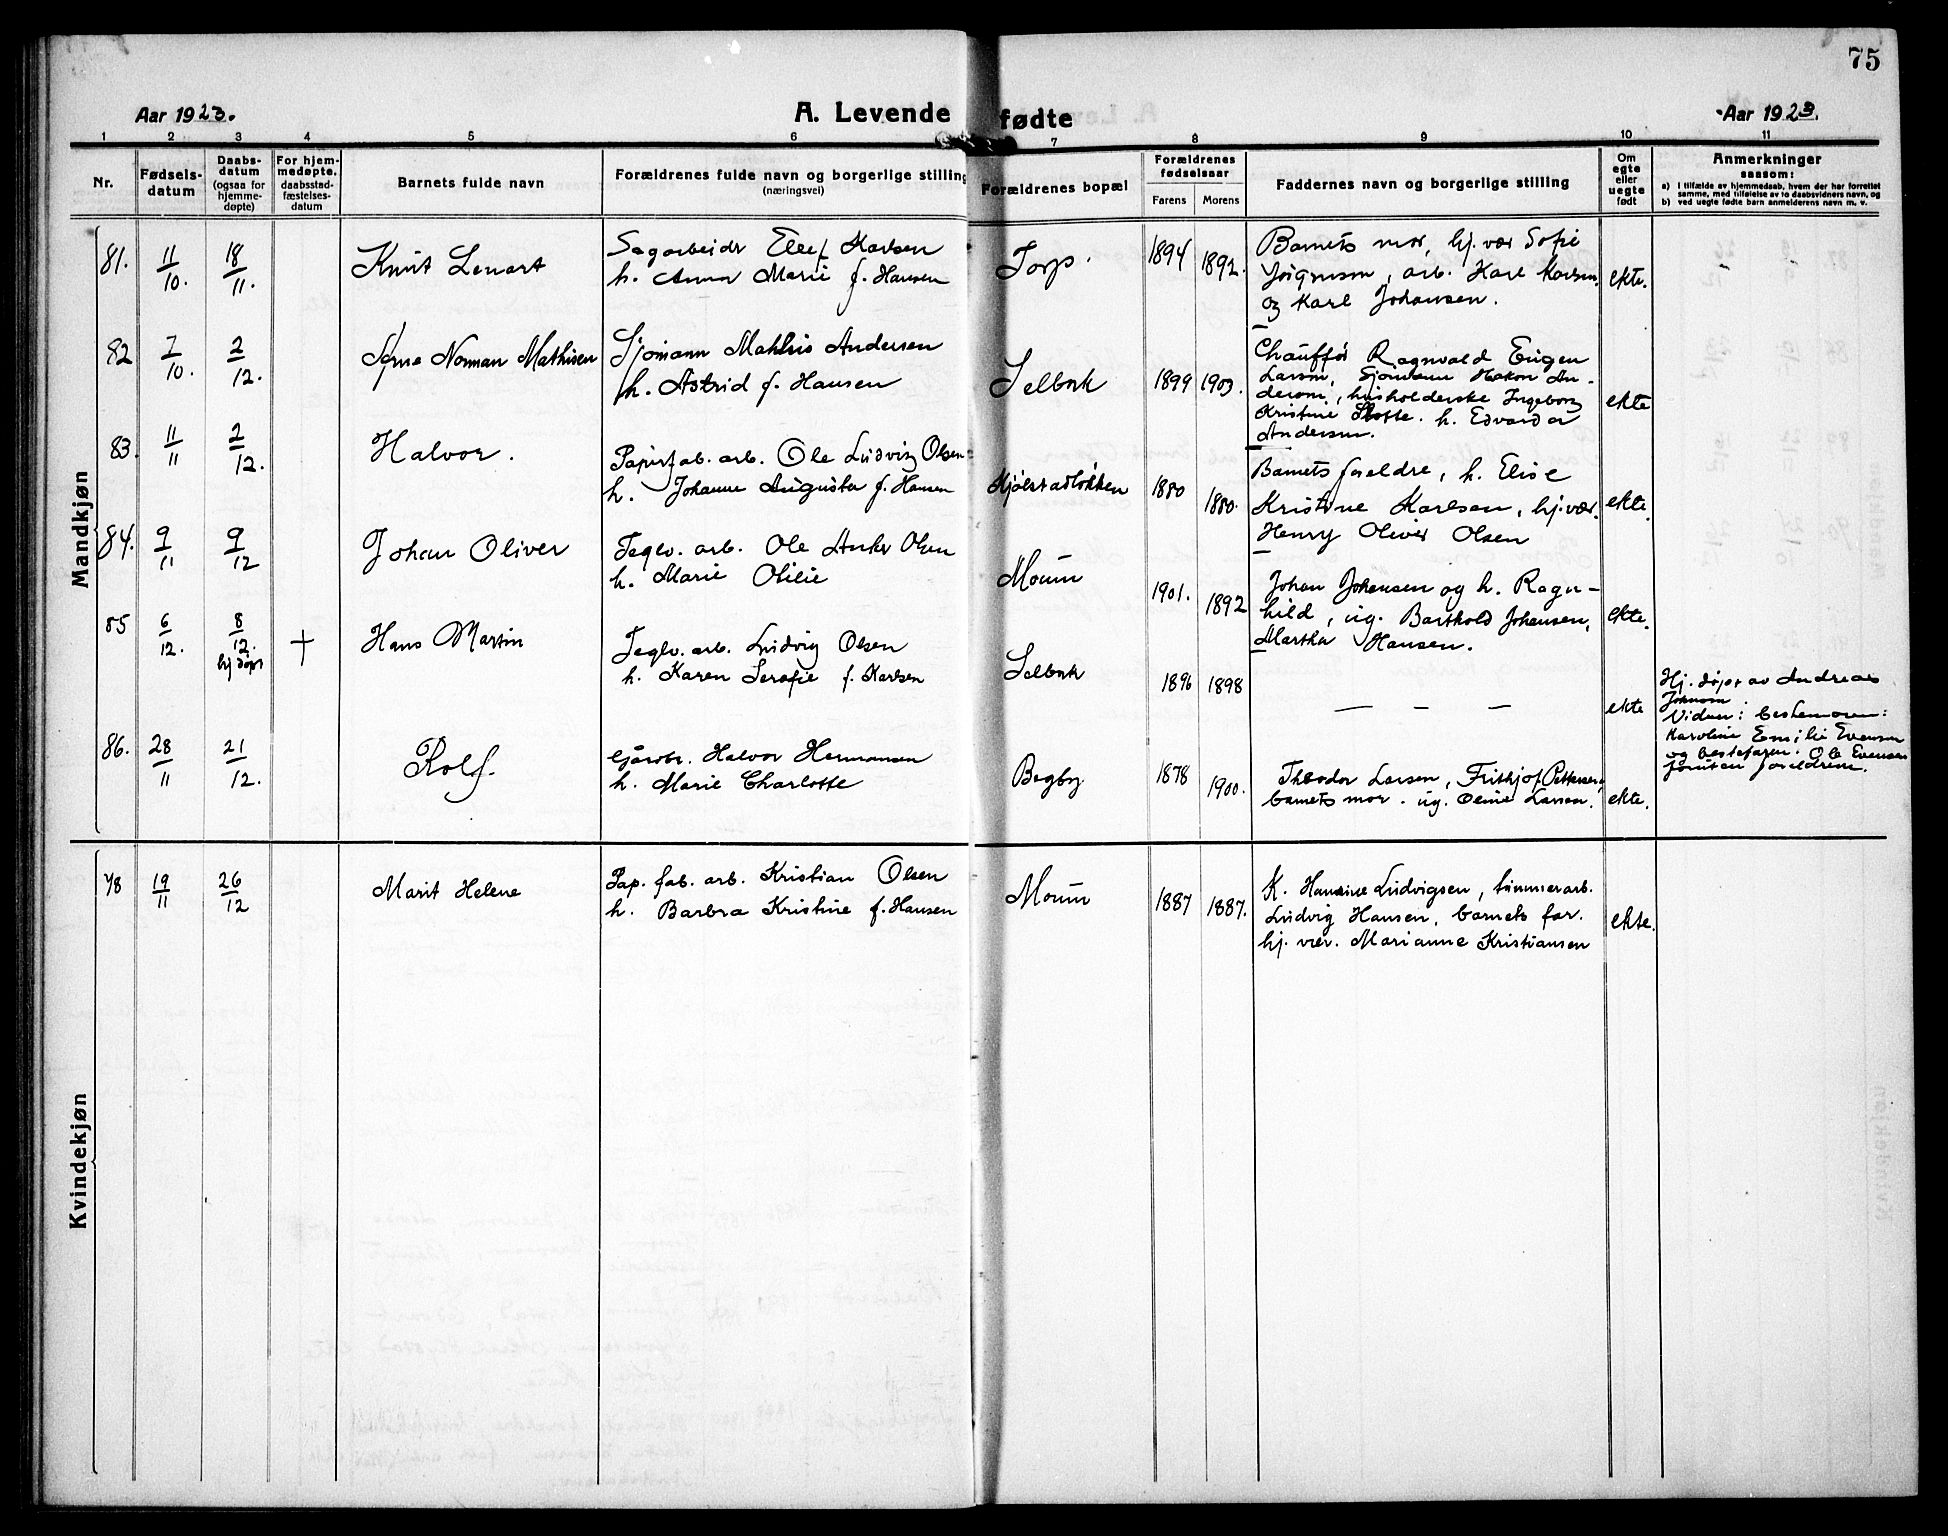 75
Aar 1923.
A. Levende fødte
Aar 1923.
1 2 3 4 5 6 7 8 9 10 11
Nr.
Fødsels-
datum
Daabs-
datum
(ogsaa for
hjemme-
døpte)
For hjem-
medøpte.
daabsstad-
fæstelses-
datum
Barnets fulde navn
Forældrenes fulde navn og borgerlige stilling
(næringsvei)
Forældrenes bopæl
Forældrenes
fødselsaar
Farens Morens
Faddernes navn og borgerlige stilling
Om
egte
eller
uegte
født
Anmerkninger
saasom:
a) i tilfælde av hjemmedaab, hvem der har forrettet
samme, med tilføielse av to daabsvidners navn, og
b) ved uegte fødte barn anmelderens navn m. v.
Mandkjøn
81. 11/10. 18/11. Knut Lenart
Sagarbeidr Ellef Karlsen
h. Anna Marie f. Hansen
Torp. 1894 1892.
Barnets mor, hj. vær Sofie
Jørgensen, arb. Karl Karlsen
og Karl Johansen.
ekte.
82 7/10. 2/12. Arne Norman Mathisen
Sjømann Mathis Andersen
h. Astrid f. Hansen
Selbak 1899 1903.
Chauffør Ragnvald Eugen
Larsen, Sjømann Hakon An-
dersen, husholderske Ingeborg
Kristine h. Edvarda
Andersen.
ekte
83. 11/11 2/12. Halvor.
Papirfab. arb. Ole Ludvig Olsen
h. Johanne Augusta f. Hansen
Kjølstadløkken 1880 1880.
Barnets foreldre, h. Elise
Kristine Karlsen, hj. vær.
Henry Oliver Olsen
ekte.
84. 9/11 9/12 Johan Oliver
Teglv. arb. Ole Anker Olsen
h. Marie Otilie
Moum 1901. 1892
Johan Johansen og h. Ragn-
hild, ug. Barthold Johansen,
Martha Hansen.
ekte.
85 6/12. 8/12. hj døpt † Hans Martin
Teglv. arb. Ludvig Olsen
h. Karen Serafie f. Karlsen
Selbak 1896 1898
— — —
ekte
Hj. døpt av Andreas
Johnsen
Vidner: bestemoren:
Karoline Emilie Evensen
og bestefaren. Ole Evensen
foruten foreldrene.
86. 28/11 21/12. Rolf.
Gårdbr. Halvor Hermansen
h. Marie Charlotte
Begby 1878 1900.
Theodor Larsen, Frithjof Pettersen,
barnets mor. ug. Oline Larsen.
ekte.
Kvindekjøn
78 19/11 26/12 Marit Helene
Pap. fab. arb. Kristian Olsen
h. Barbra Kristine f. Hansen
Moum 1887 1887.
K. Hansine Ludvigsen, tømmerarb.
Ludvig Hansen, barnets far.
hj. vær. Marianne Kristiansen
ekte.